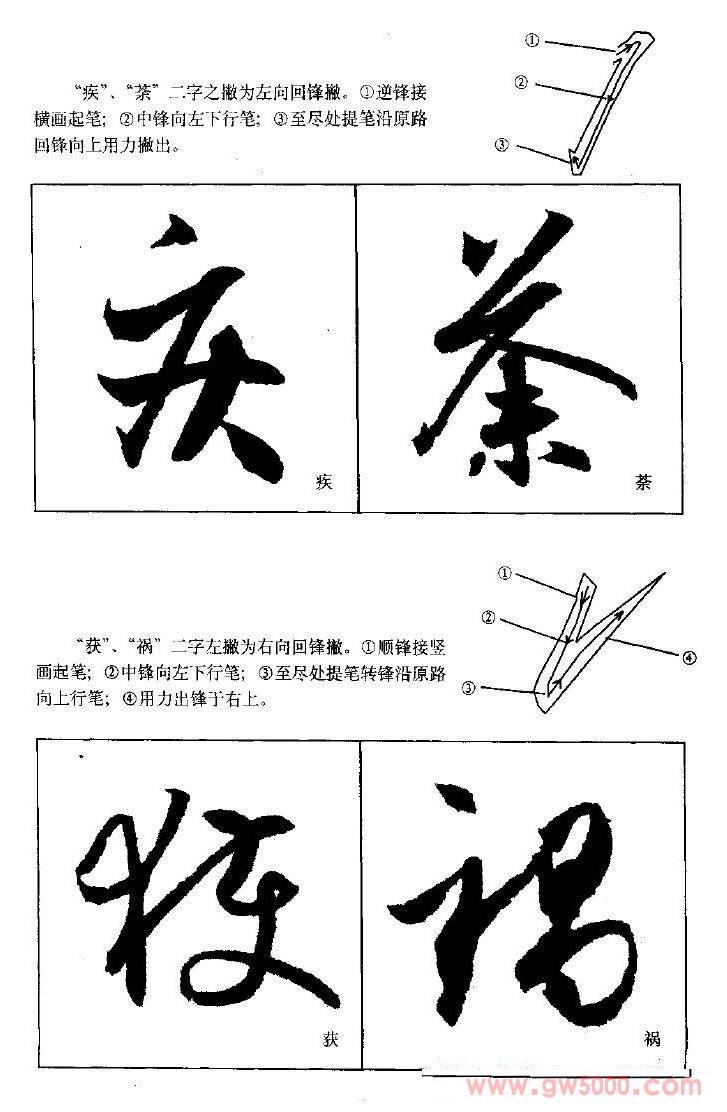 ①
②
③
“疾”、“荼”二字之撇为左向回锋撇。①逆锋接
横画起笔；②中锋向左下行笔；③至尽处提笔沿原路
回锋向上用力撇出。
疾 荼
疾 荼
①
②
③
④
“获”、“祸”二字左撇为右向回锋撇。①顺锋接竖
画起笔；②中锋向左下行笔；③至尽处提笔转锋沿原路
向上行笔；④用力出锋于右上。
獲 禍
获 祸
www.gw5000.com